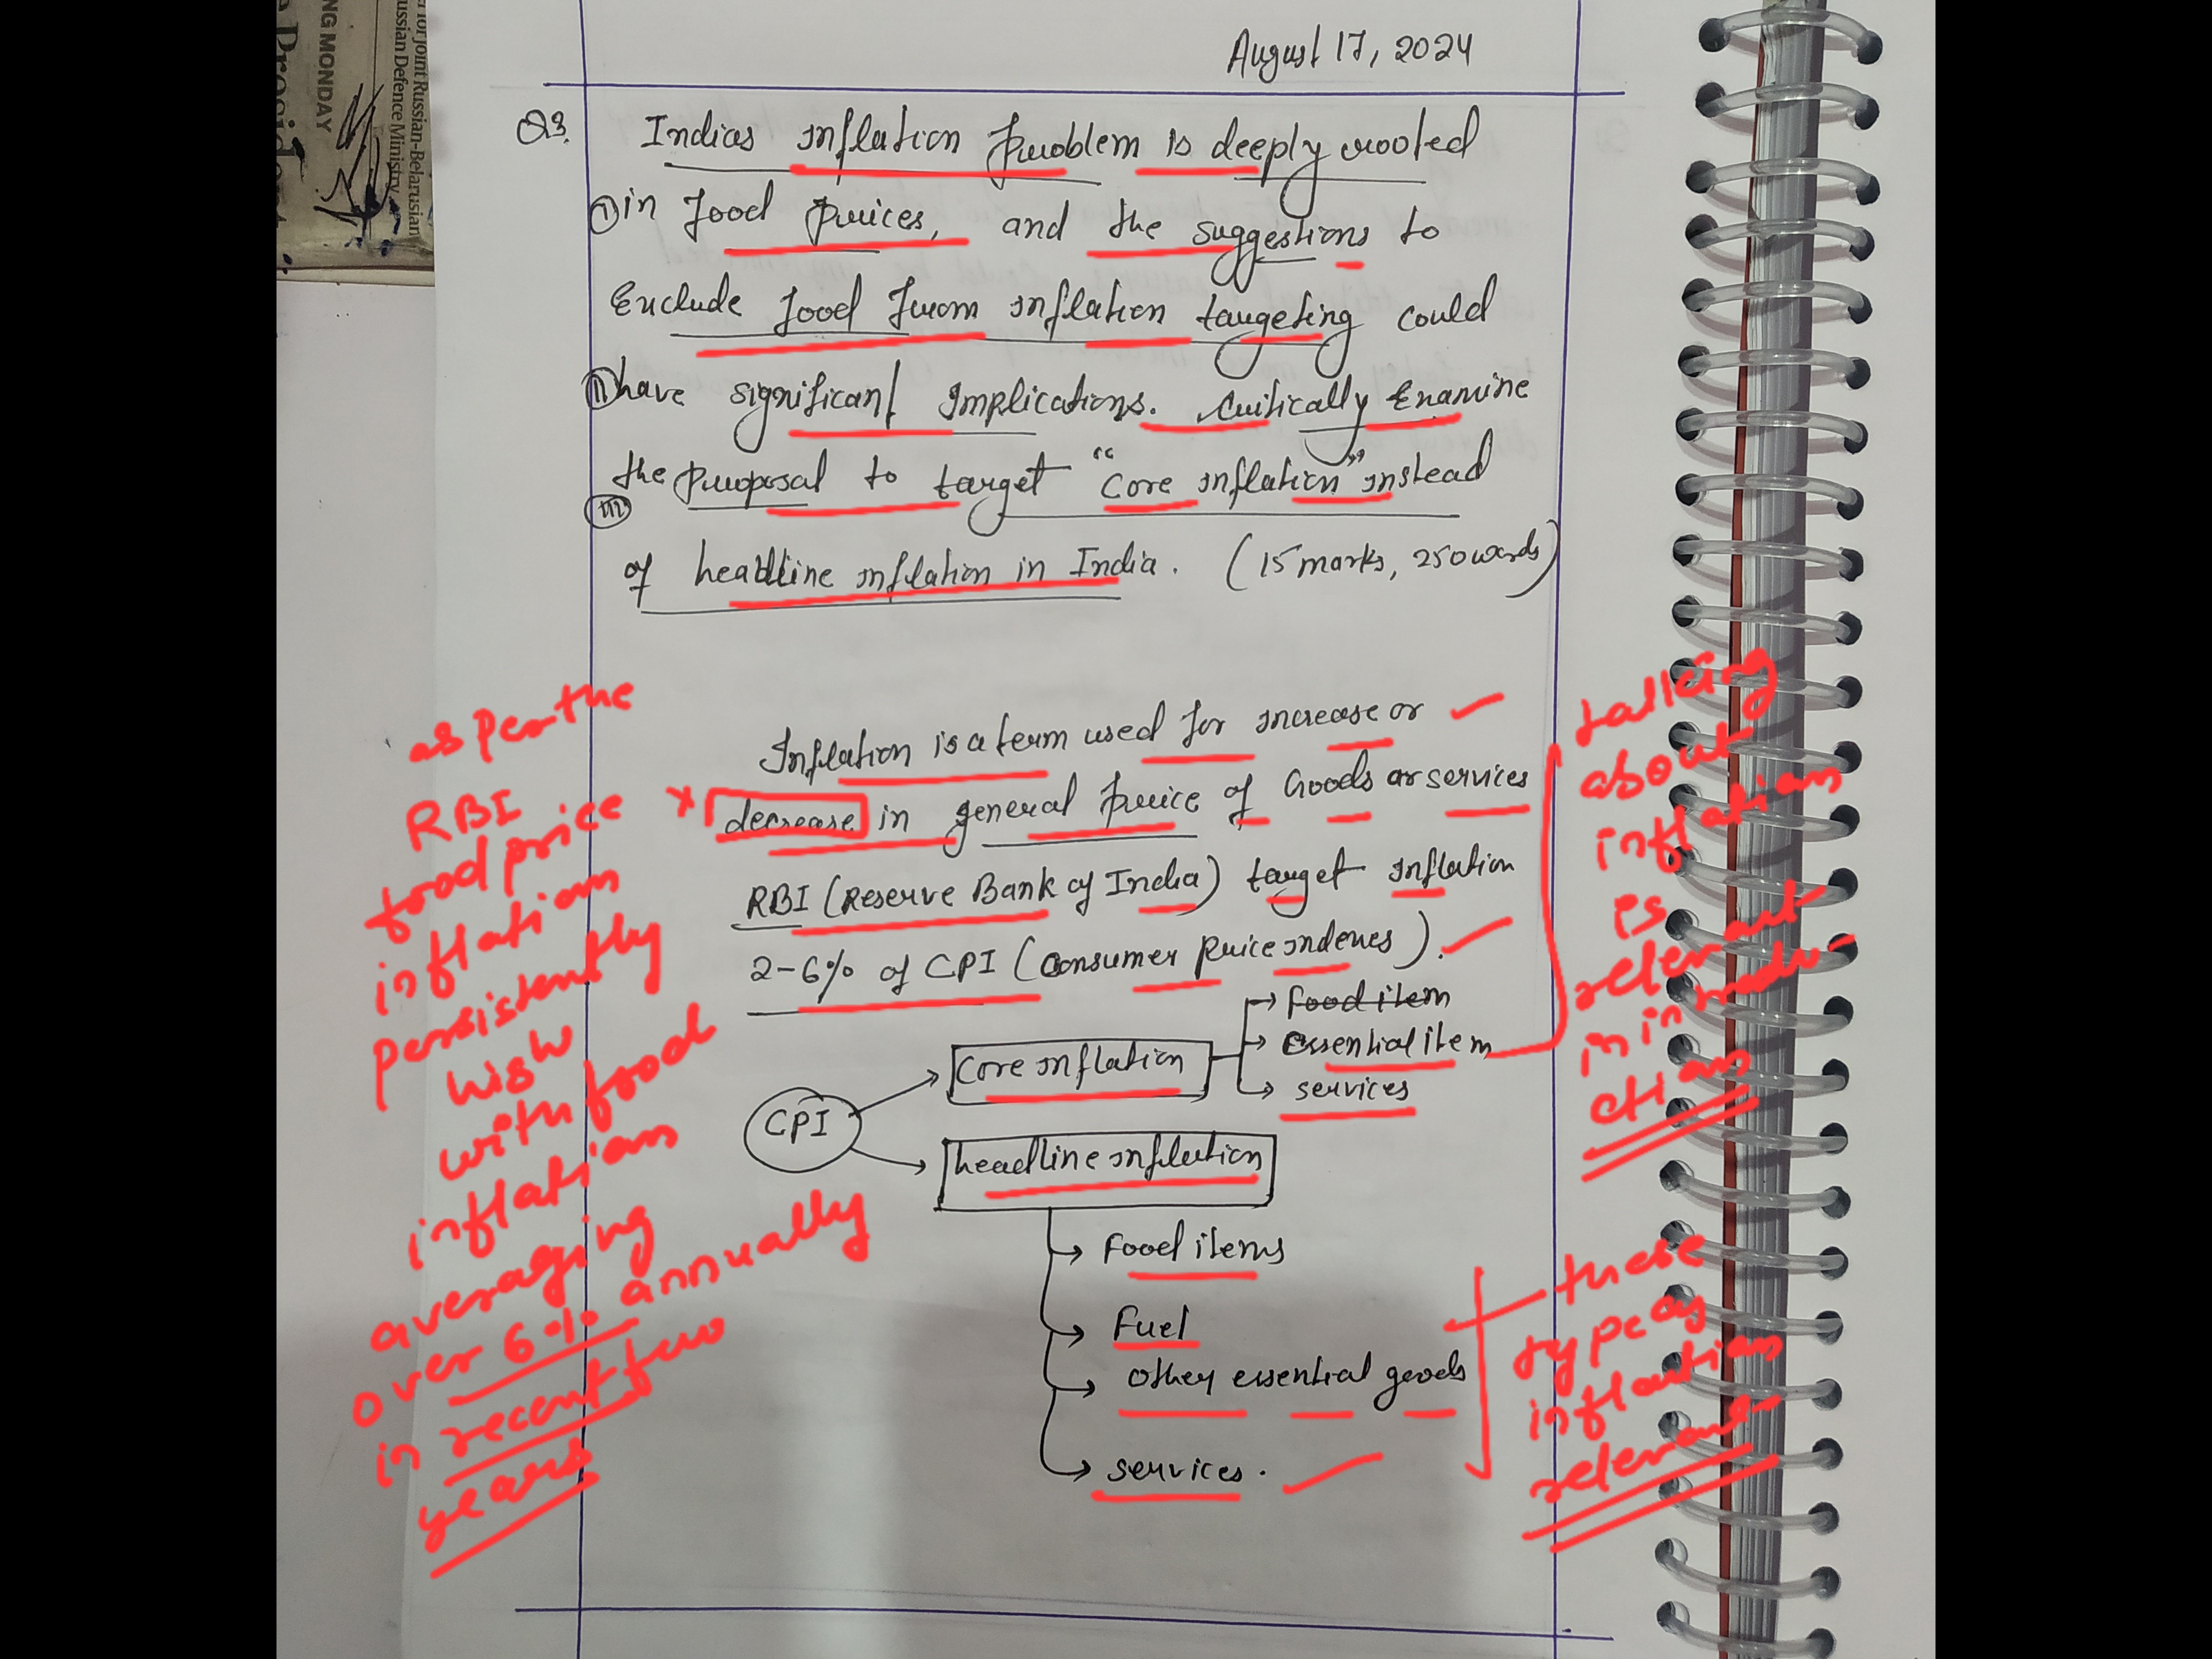 August 17, 2024
Q3. Indias inflation problem is deeply rooted
① in food prices, and the suggestions to
Exclude food from inflation targeting could
② have significant Implications. Critically Examine
the proposal to target "Core inflation" instead
③
of headline inflation in India. (15 marks, 250 words)
Inflation is a term used for increase or
decrease in general price of Goods or services
RBI (Reserve Bank of India) target inflation
2-6% of CPI (Consumer Price indexes).
CPI
Core inflation
Food item
essential item
services
headline inflation
Food items
Fuel
other essential goods
services.
as per the
RBI
food price
inflation
persistently
high
with food
inflation
averaging
over 6% annually
in recent few
years
talking
about
inflation
is
relevant
in introdu-
ction
these
type of
inflation
relevant
NG MONDAY
for joint Russian-Belarusian
ussian Defence Ministry